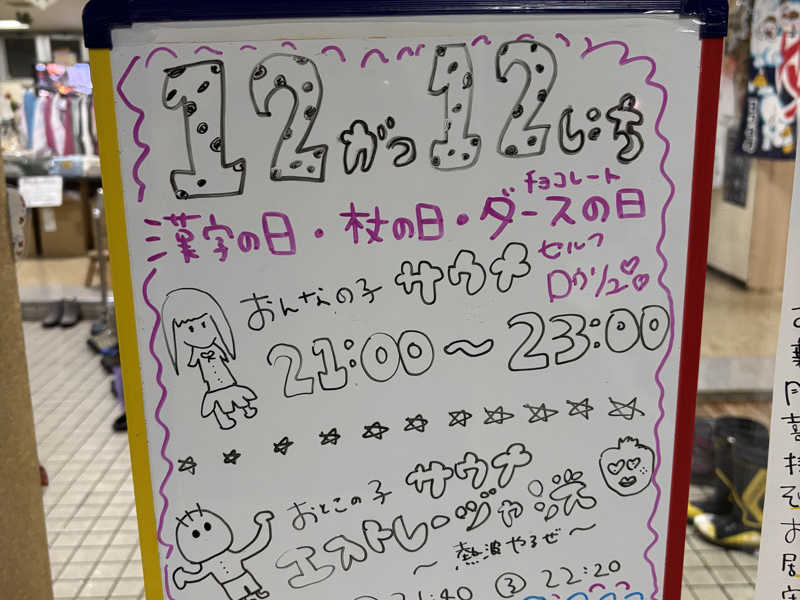 12がつ12にち
チョコレート
漢字の日・杖の日・ダースの日
おんなの子 サウナ セルフ
ロウリュ
21:00〜23:00
おとこの子 サウナ
エストレージャジズ
〜熱波やるぜ〜
21:40 ③ 22:20